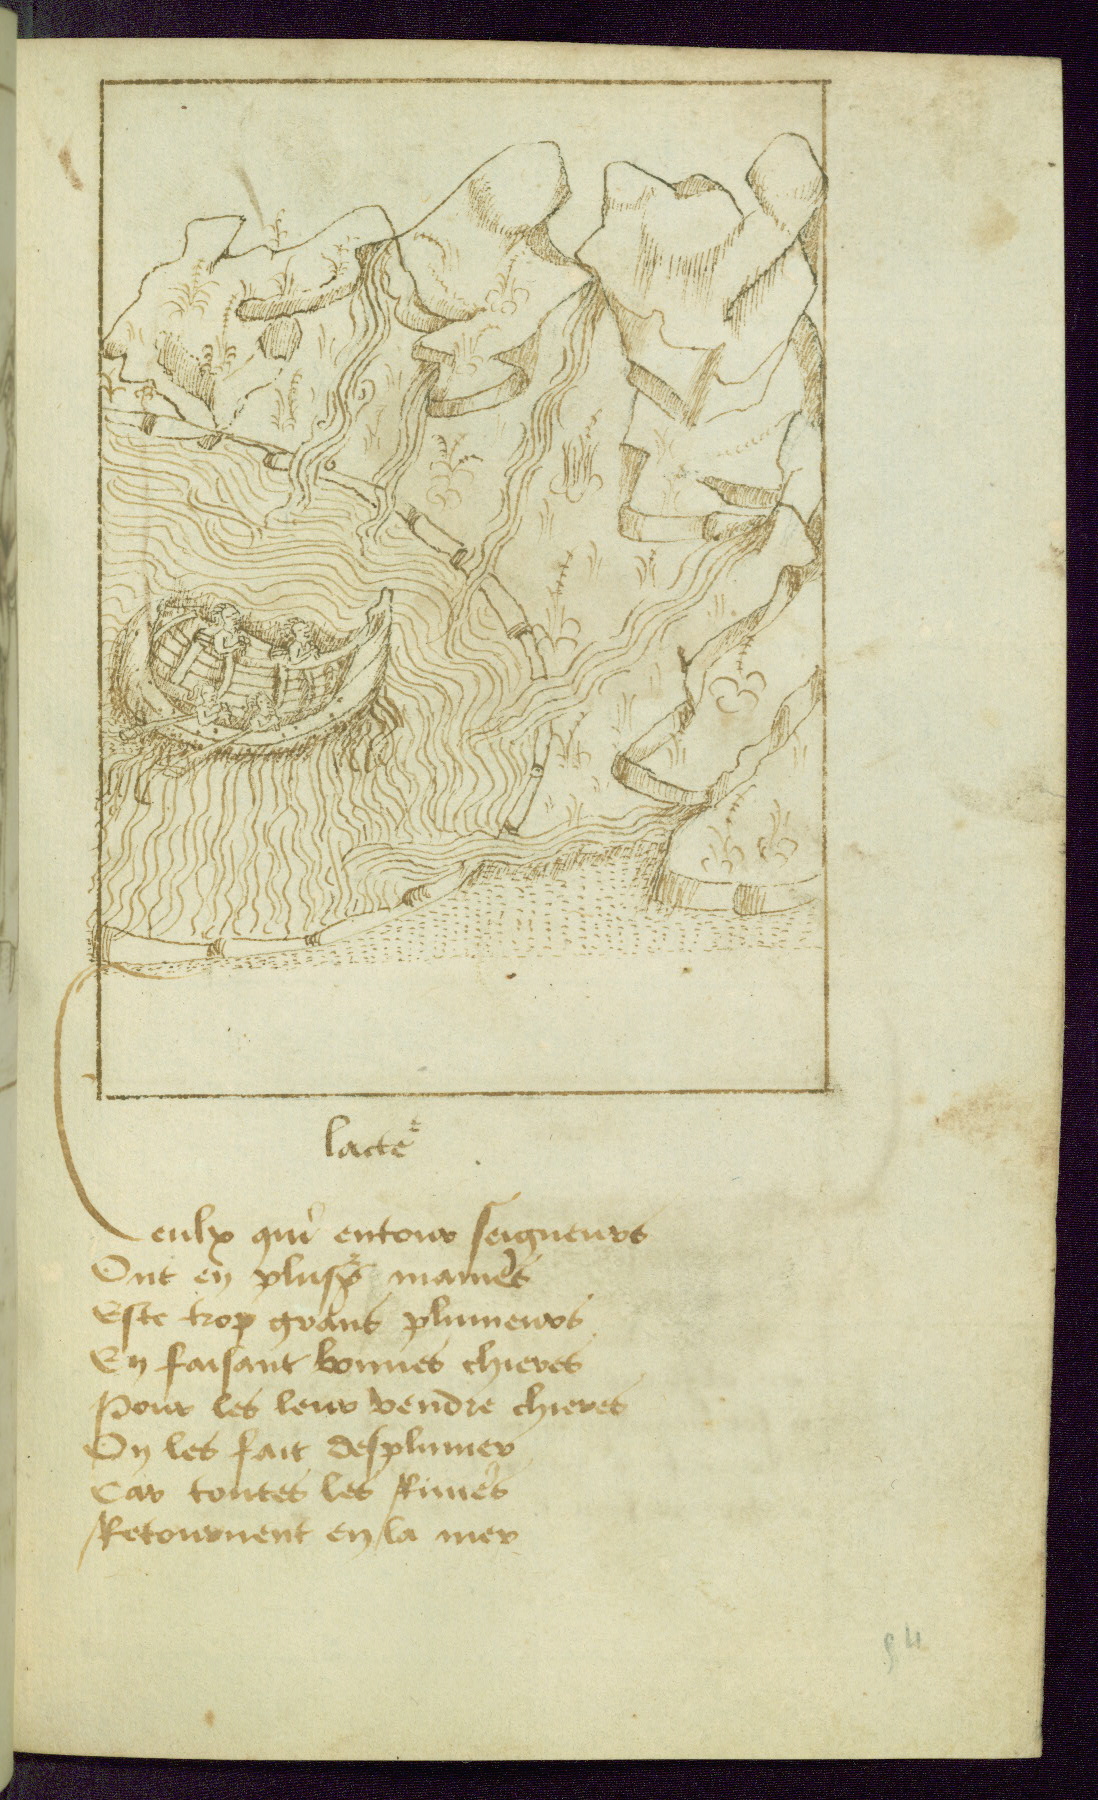 lacteur
Ceulx qui entour seigneurs
Ont en plusrs manieres
Este trop grans plumeurs
En faisant bonnes chieres
Pour les leur vendre chieres
On les fait desplumer
Car toutes les Riuieres
Retournent en la mer
54